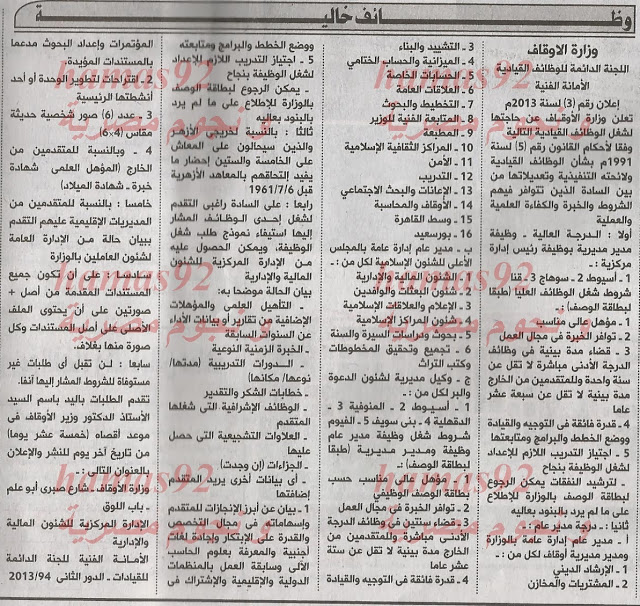 وظــــــائف خاليـــــــة
وزارة الاوقاف
اللجنة الدائمة للوظائف القيادية
الأمانة الفنية
إعلان رقم (3) لسنة 2013م
تعلن وزارة الأوقاف عن حاجتها
لشغل الوظائف القيادية التالية
وفقا لأحكام القانون رقم (5) لسنة
1991م بشأن الوظائف القيادية
ولائحته التنفيذية وتعديلاتها من
بين السادة الذين تتوافر فيهم
الشروط والخبرة والكفاءة العلمية
والعملية
أولا : الـدرجـة العالية ـ وظيفة
مدير مديرية بوظيفة رئيس إدارة
مركزية :ـ
1 ـ أسيوط 2ـ سوهاج 3ـ قنا
شروط شغل الوظائف العليا (طبقا
لبطاقة الوصف) :ـ
1 ـ مؤهل عالي مناسب
2 ـ توافر الخبرة فى مجال العمل
3 ـ قضاء مدة بينية فى وظائف
الدرجة الأدنى مباشرة لا تقل عن
سنة واحدة وللمتقدمين من الخارج
مدة بينية لا تقل عن سبعة عشر
عاما
4 ـ قدرة فائقة فى التوجيه والقيادة
ووضع الخطط والبرامج ومتابعتها
5 ـ اجتياز التدريب اللازم للإعداد
لشغل الوظيفة بنجاح
ـ لترشيد النفقات يمكن الرجوع
لبطاقة الوصف بالوزارة للإطلاع
على ما لم يرد بالبنود بعاليه
ثانيا :ـ درجة مدير عام :ـ
أ ـ مدير عام إدارة عامة بالوزارة
ومدير مديرية أوقاف لكل من :ـ
1 ـ الإرشاد الديني
2 ـ المشتريات والمخازن
3 ـ التشييد والبناء
4 ـ الميزانية والحساب الختامي
5 ـ الحسابات الخاصة
6 ـ العلاقات العامة
7 ـ التخطيط والبحوث
8 ـ المتابعة الفنية للوزير
9 ـ المطبعة
10 ـ المراكز الثقافية الإسلامية
11 ـ الأمن
12 ـ التدريب
13 ـ الإعانات والبحث الاجتماعي
14 ـ الأوقاف والمحاسبة
15 ـ وسط القاهرة
16 ـ بورسعيد
ب ـ مدير عام إدارة عامة بالمجلس
الأعلى للشئون الإسلامية لكل من :ـ
1 ـ الشئون المالية والإدارية
2 ـ شئون البعثات والوافدين
3 ـ الإعلام والعلاقات الإسلامية
4 ـ شئون المراكز الإسلامية
5 ـ بحوث ودراسات السيرة والسنة
6 ـ تجميع وتحقيق المخطوطات
وكتب التراث
ج ـ وكيل مديرية لشئون الدعوة
والبر لكل من :ـ
1 ـ أسـيـوط 2 ـ المنوفية 3 ـ
الدقهلية 4 ـ بنى سويف 5 ـ الفيوم
شروط شغل وظيفة مدير عام
وظيفة ومدير مديرية (طبقا
لبطاقة الوصف) :ـ
1 ـ مؤهل عالي مناسب حسب
بطاقة الوصف الوظيفي
2 ـ توافر الخبرة فى مجال العمل
3 ـ قضاء سنتين فى وظائف الدرجة
الأدنى مباشرة وللمتقدمين من
الخارج مدة بينية لا تقل عن ستة عشر
عاما
4 ـ قدرة فائقة فى التوجيه والقيادة
ووضع الخطط والبرامج ومتابعته
5 ـ اجتياز التدريب اللازم للإعداد
لشغل الوظيفة بنجاح
ـ يمكن الرجوع لبطاقة الوصف
بالوزارة للإطلاع على ما لم يرد
بالبنود بعاليه
ثالثا : بالنسبة لخريجي الأزهر
والذين سيحالون على المعاش
على الخامسة والستين إحضار ما
يفيد إلتحاقهم بالمعاهد الأزهرية
قبل 1961/7/6
رابعا : على السادة راغبى التقدم
لشغل إحـدى الـوظـائـف المشار
إليها استيفاء نموذج طلب شغل
الوظيفة، ويمكن الحصول عليه
من الإدارة المركزية للشئون
المالية والإدارية
بيان الحالة موضحا به:
ـ التأهيل العلمى والمؤهلات
الإضافية من تقارير أو بيانات الأداء
عن السنوات السابقة
ـ الخبرة الزمنية النوعية
ـ الـدورات التدريبية (مدتها/
نوعها/ مكانها)
ـ خطابات الشكر والتقدير
ـ الوظائف الإشرافية التى شغلها
المتقدم
ـ العلاوات التشجيعية التى حصل
عليها
ـ الجزاءات (إن وجدت)
ـ أى بيانات أخرى يريد المتقدم
إضافتها
1 ـ بيان عن أبرز الإنجازات للمتقدم
وإسهاماته فى مجال التخصص
والقدرة على الابتكار وإجادة لغات
أجنبية والمعرفة بعلوم الحاسب
الألى وسابقة العمل بالمنظمات
الدولية والإقليمية والإشتراك فى
المؤتمرات وإعداد البحوث مدعما
بالمستندات المؤيدة.
2 ـ اقتراحات لتطوير الوحدة أو أحد
أنشطتها الرئيسية
3 ـ عدد (6) صور شخصية حديثة
مقاس (4×6)
4 ـ وبالنسبة للمتقدمين من
الخارج (المؤهل العلمى شهادة
خبرة ـ شهادة الميلاد)
خامسا : بالنسبة للمتقدمين من
المديريات الإقليمية عليهم التقدم
ببيان حالة مـن الإدارة العامة
لشئون العاملين بالوزارة
سادسا : على أن تكون جميع
المستندات المقدمة من أصل +
صورتين على أن يحتوى الملف
الأصلى على أصل المستندات وكل
صورة منها بغلاف.
سابعا : لـن تقبل أى طلبات غير
مستوفاة للشروط المشار إليها أنفا.
تقدم الطلبات باليد باسم السيد
الأستاذ الدكتور وزير الأوقاف فى
موعد أقصاه (خمسة عشر يوما)
من تاريخ آخر يوم للنشر والإعلان
بالعنوان التالى :ـ
وزارة الأوقاف ـ شارع صبرى أبو علم
ـ باب اللوق
الإدارة المركزية للشئون المالية
والإدارية
الأمانة الفنية للجنة الدائمة
للقيادات ـ الدور الثانى 2013/94
hamas92
و نجوم مصرية
hamas92
و نجوم مصرية
hamas92
و نجوم مصرية
hamas92
و نجوم مصرية
hamas92
و نجوم مصرية
hamas92
و نجوم مصرية